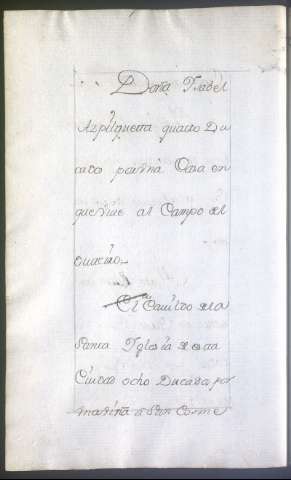 Doña Ysabel
Azpilqueta quatro Du
cados por una Casa en
que viue al Campo del
El Cauildo de la
Santa Yglesia de esta
Ciudad ocho Ducados por
San Cosme